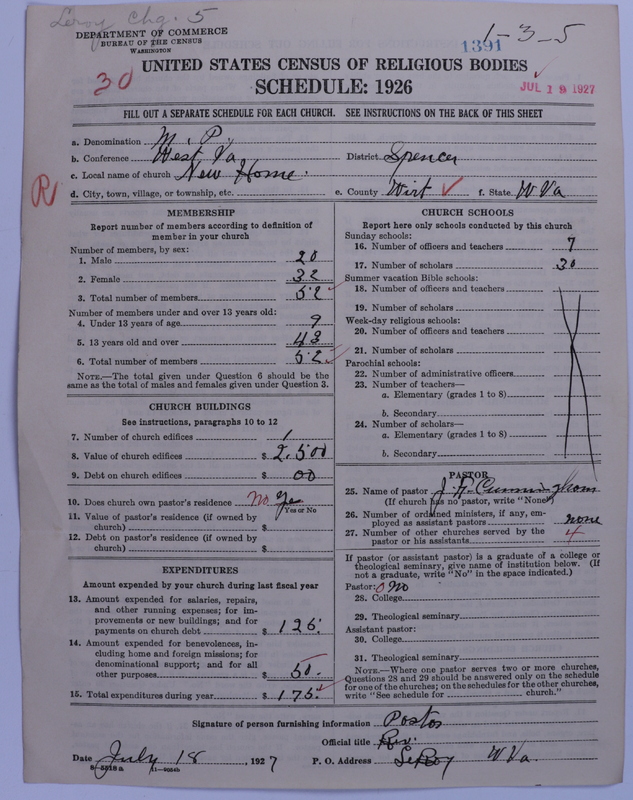 Leroy Chg. 5
DEPARTMENT OF COMMERCE
BUREAU OF THE CENSUS
WASHINGTON
1391
1-3-5
UNITED STATES CENSUS OF RELIGIOUS BODIES
30
SCHEDULE: 1926
JUL 19 1927
FILL OUT A SEPARATE SCHEDULE FOR EACH CHURCH. SEE INSTRUCTIONS ON THE BACK OF THIS SHEET
a. Denomination M. P.
b. Conference West Va District Spencer
c. Local name of church New Home.
R
d. City, town, village, or township, etc. e. County Wirt f. State W Va
MEMBERSHIP
Report number of members according to definition of
member in your church
Number of members, by sex:
1. Male 20
2. Female 32
3. Total number of members 52
Number of members under and over 13 years old:
4. Under 13 years of age 9
5. 13 years old and over 43
6. Total number of members 52
NOTE.—The total given under Question 6 should be the
same as the total of males and females given under Question 3.
CHURCH BUILDINGS
See instructions, paragraphs 10 to 12
7. Number of church edifices 1
8. Value of church edifices $ 2,500
9. Debt on church edifices $ 00
10. Does church own pastor's residence No Yes
Yes or No
11. Value of pastor's residence (if owned by
church) $
12. Debt on pastor's residence (if owned by
church) $
EXPENDITURES
Amount expended by your church during last fiscal year
13. Amount expended for salaries, repairs,
and other running expenses; for im-
provements or new buildings; and for
payments on church debt $ 125.
14. Amount expended for benevolences, in-
cluding home and foreign missions; for
denominational support; and for all
other purposes $ 50.
15. Total expenditures during year $ 175.
CHURCH SCHOOLS
Report here only schools conducted by this church
Sunday schools:
16. Number of officers and teachers 7
17. Number of scholars 30
Summer vacation Bible schools:
18. Number of officers and teachers
19. Number of scholars
Week-day religious schools:
20. Number of officers and teachers
21. Number of scholars
Parochial schools:
22. Number of administrative officers
23. Number of teachers—
a. Elementary (grades 1 to 8)
b. Secondary
24. Number of scholars—
a. Elementary (grades 1 to 8)
b. Secondary
PASTOR
25. Name of pastor J F Cunningham
(If church has no pastor, write "None")
26. Number of ordained ministers, if any, em-
ployed as assistant pastors none
27. Number of other churches served by the
pastor or his assistants 4
If pastor (or assistant pastor) is a graduate of a college or
theological seminary, give name of institution below. (If
not a graduate, write "No" in the space indicated.)
Pastor: 0 No
28. College
29. Theological seminary
Assistant pastor:
30. College
31. Theological seminary
NOTE.—Where one pastor serves two or more churches,
Questions 28 and 29 should be answered only on the schedule
for one of the churches; on the schedules for the other churches,
write "See schedule for church."
Signature of person furnishing information Pastor
Official title Rev.
Date July 18, 1927 P. O. Address LeRoy W Va.
8-5518a 11-9034b